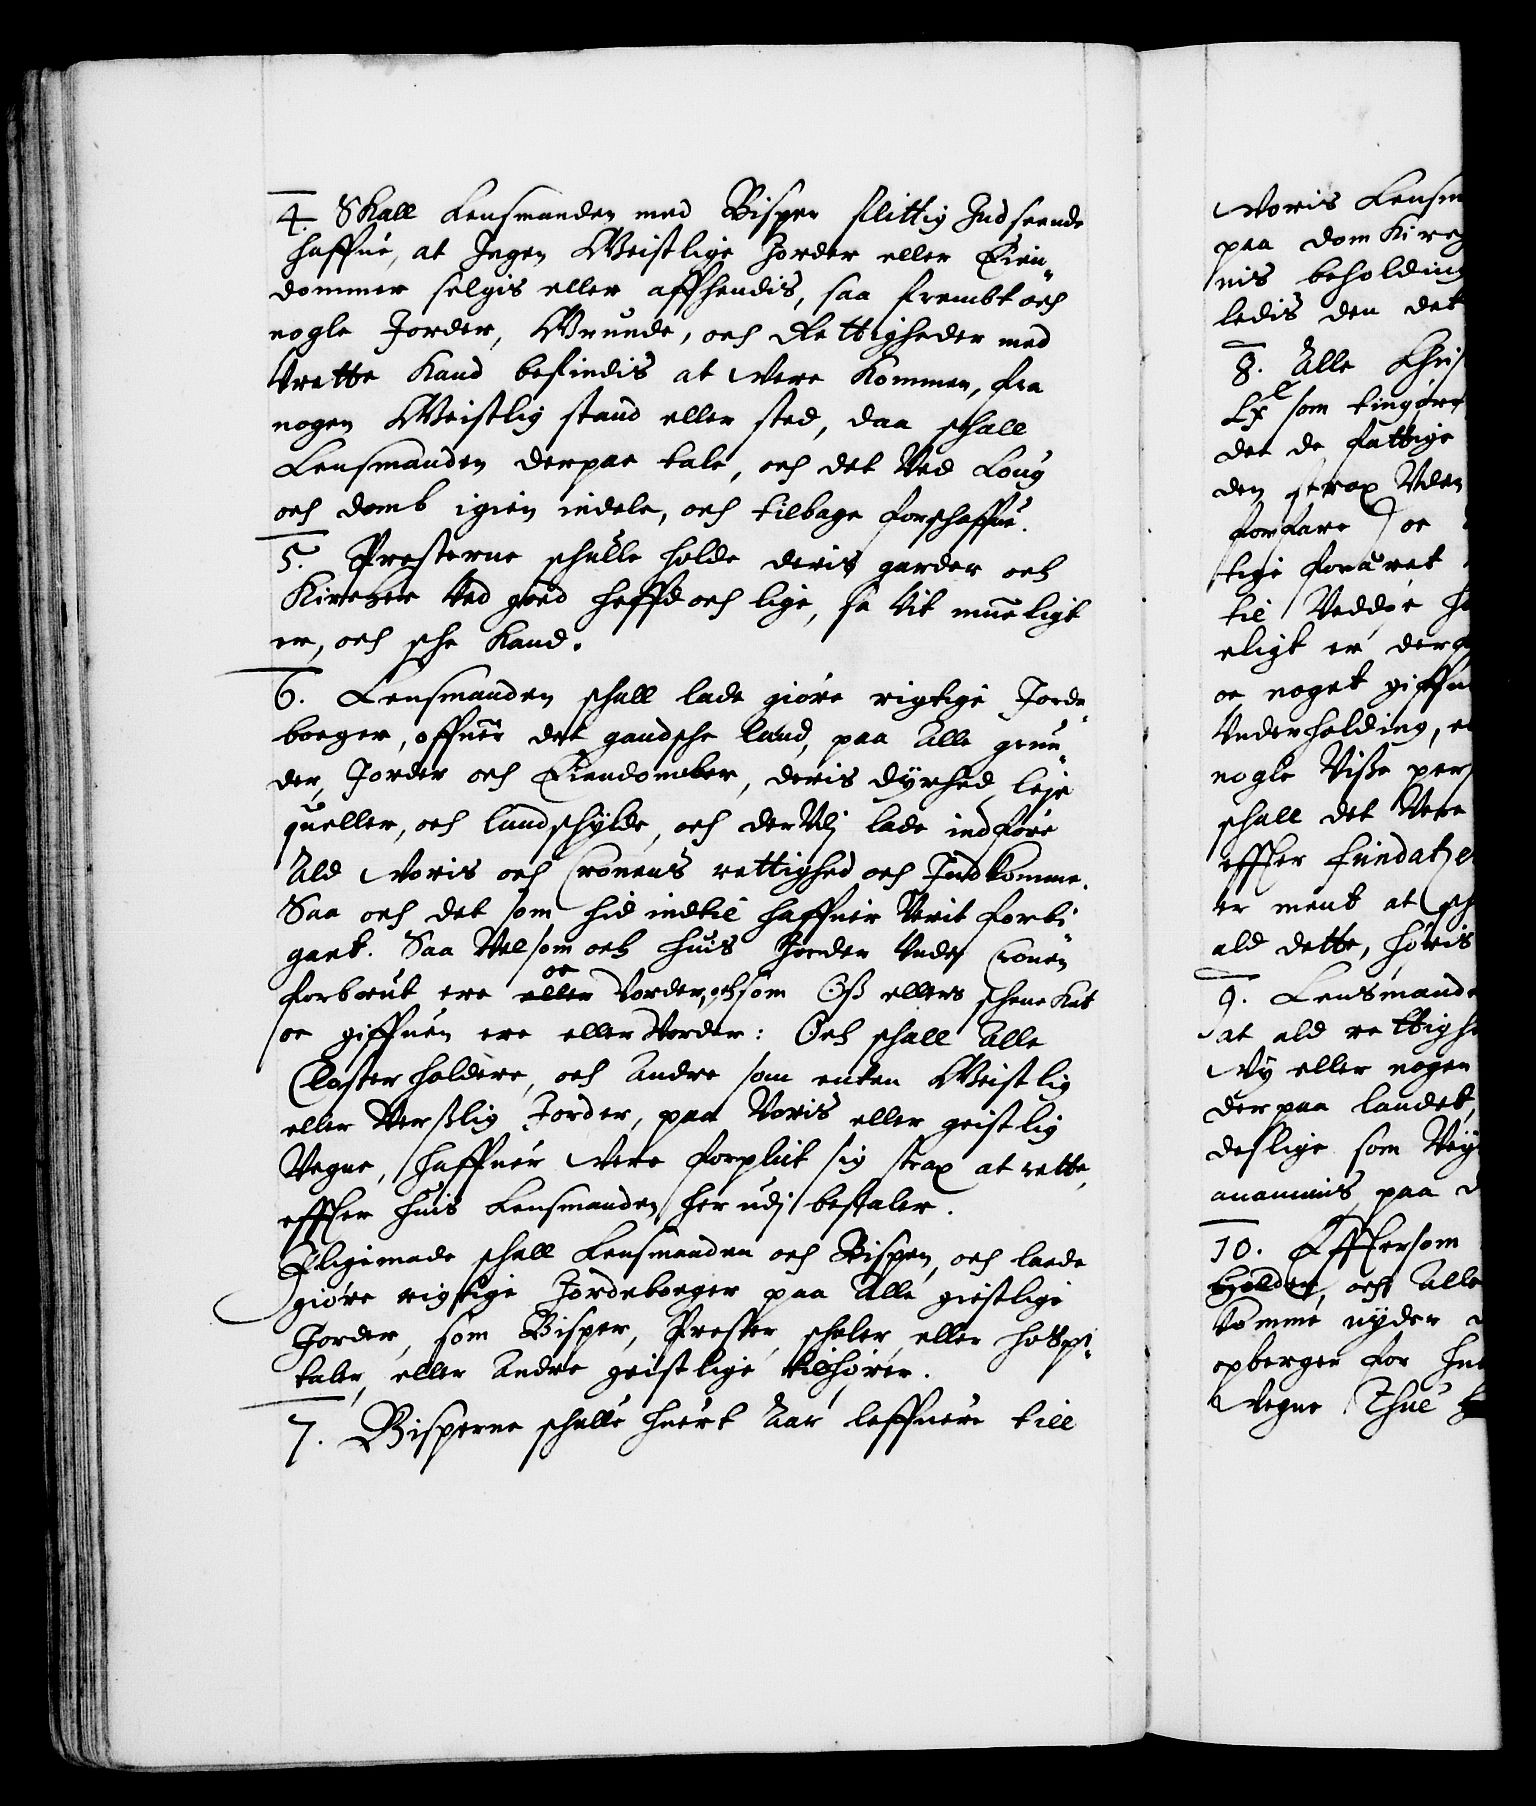 4. Skall Lensmanden med Bisper flittig Indseende
haffue, at Ingen Geistlige Jorder eller Eien„
dommer selgis eller affhendis, saa frembt och
nogle Jorder, Grunde, och Rettigheder med
Vrette Kand befindis at Were Kommen, fra
nogen Geistlig stand eller sted, daa schall
Lensmanden derpaa tale, och det Ved Loug
och domb igien indele, och tilbage forschaffue.
5. Presterne schulle holde deris garder och
Kircher Ved goed heffd och lige, sa Vit mueligt
er, och sche Kand.
6. Lensmanden schall lade giøre rigtige Jorde„
boeger, offuer det gandsche land, paa Alle grun„
der, Jorder och Eiendomber, deris dyrhed leje
queller, och landschylde, och derVdj lade indføre
Ald Woris och Cronens rettighed och Indkomme.
Saa och det som hid indtil haffuer Verit forbi
gaat. Saa Vel som och huis Jorder Under Cronen
forbrut ere eller Vorder, och som Oß ellers schencket
oc giffuen ere eller Vorder: Och schall Alle
Closter holdere, och Andre som enten Geistlig
eller Verßlig Jorder, paa Voris eller geistlig
Vegne, haffuer Were forplict sig strax at rette,
effter huis Lensmanden her udj befaler.
Ligemade schall Lensmanden och Bispen, och laede
giøre rigtige Jordeboeger paa Alle giestlige
Jorder, som Bisper, Prester, scholer, eller hospi„
taler, eller Andre geistlige tilhører.
7. Bisperne schulle huert Aar leffuere till
Woris Lensm
paa dom Kirch
nis beholding
ledis den det
8. Alle
som
det de fattige
den strax Uden
forfare oc
tige foruret
til Vedder
eligt er der
oc noget giffu
Underholding,
nogle Visse pers
schall det Vere
effter fundatze
er ment at sch
ald dette, huis
9. Lensmande
at ald rettigh
Wy eller nogen
derpaa landet,
deslige som
anammis paa
10. Efftersom
holder, och Alle
Komme nyder
opberger for
Vegne